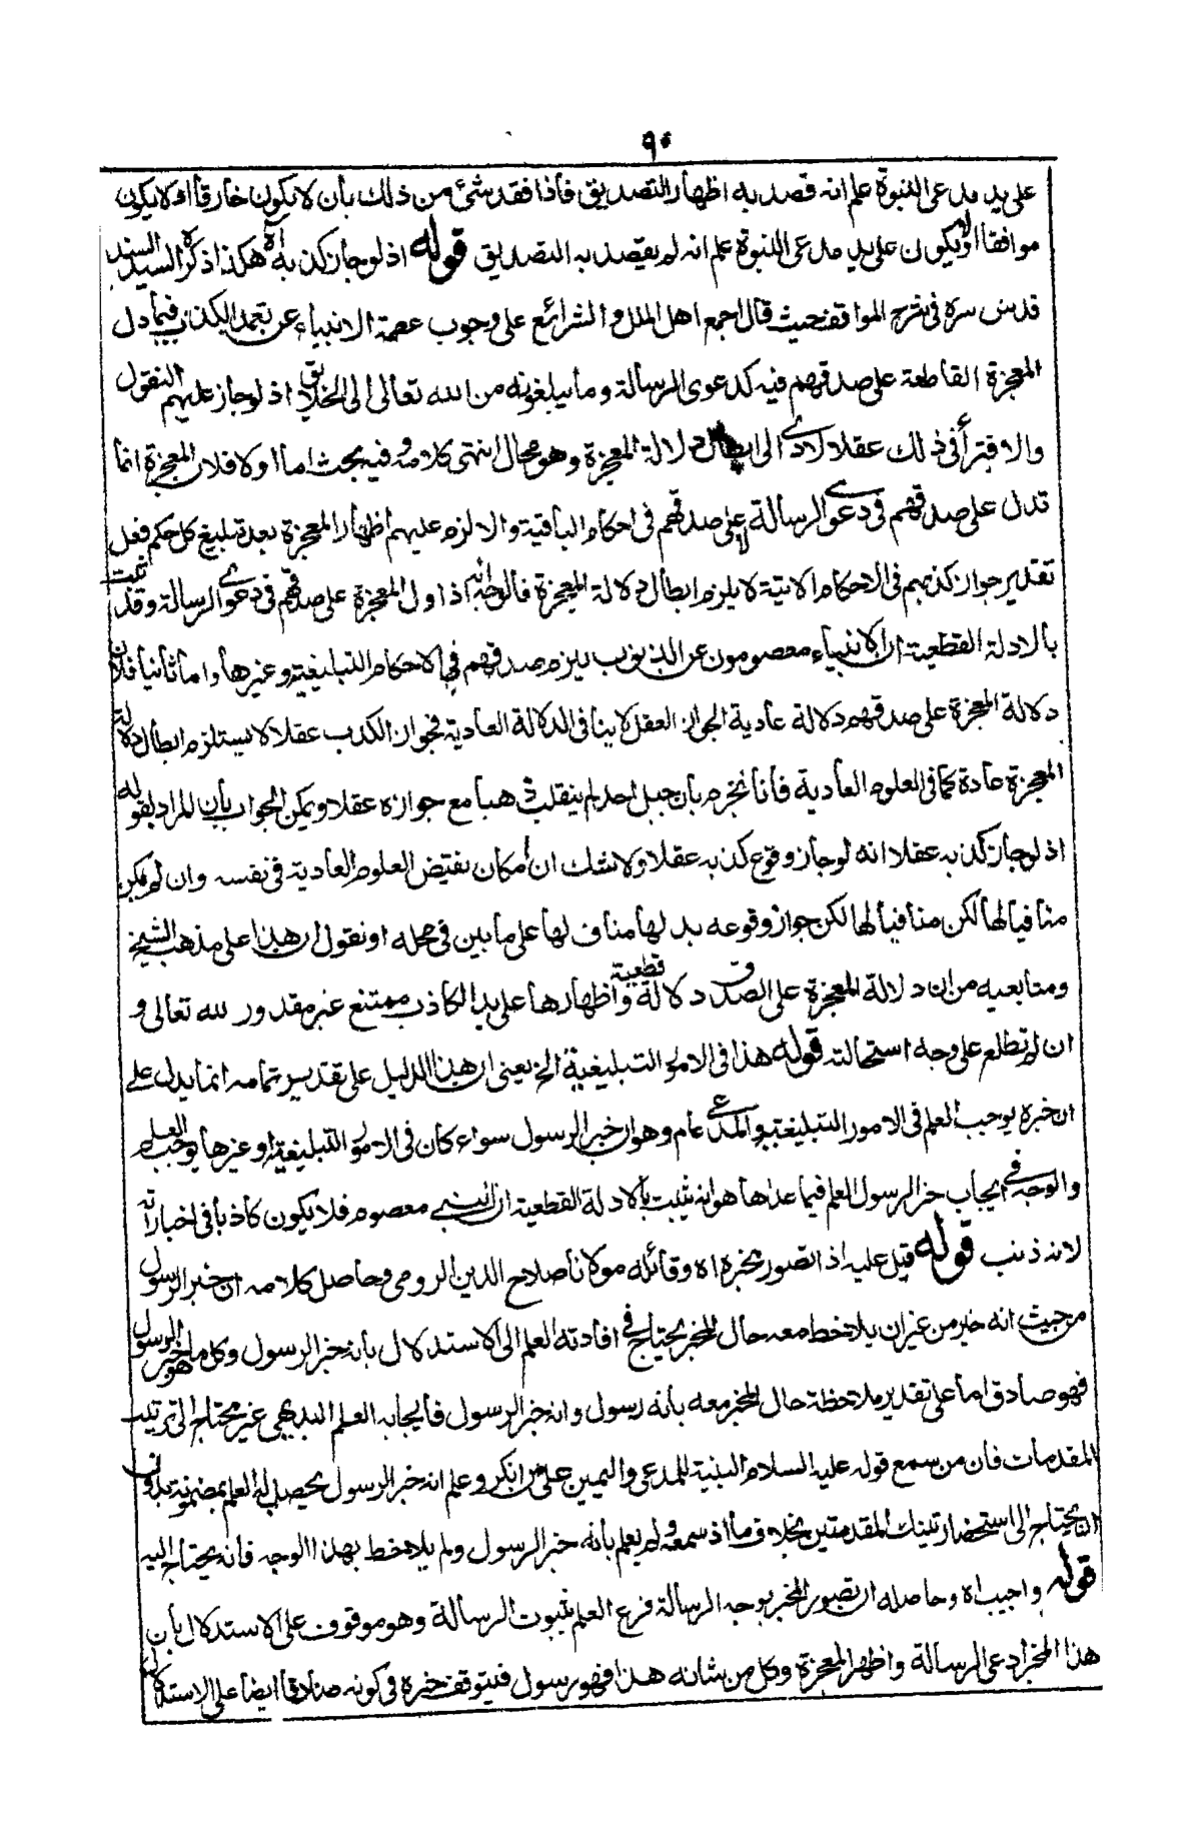 ٩٠
على يد مدعى النبوة علم انه قصد به اظهار التصديق فاذا فقد شئ من ذلك بأن لا يكون خارقا اولا يكون
موافقا اولم يكون على يد مدعى النبوة علم انه لم يقصد به التصديق قوله اذ لو جاز كذبه آه هكذا ذكره السيد السند
قدس سره فى شرح المواقف حيث قال اجمع اهل الملل والشرائع على وجوب عصمة الانبياء عن تعمد الكذب فيما دل
المعجزة القاطعة على صدقهم فيه كدعوى الرسالة وما يبلغونه من الله تعالى الى الخلايق اذ لو جاز عليهم التقول
والافتراء فى ذلك عقلا لادى الى ابطال دلالة المعجزة وهو محال انتهى كلامه وفيه بحث اما اولا فلان المعجزة انما
تدل على صدقهم فى دعوى الرسالة لا على صدقهم فى احكام الباقية والا لزم عليهم اظهار المعجزة بعد تبليغ كل حكم فعلى
تقدير جواز كذبهم فى الاحكام الاتية لا يلزم ابطال دلالة المعجزة فالوجه انه اذا دل المعجزة على صدقهم فى دعوى الرسالة وقد ثبت
بالادلة القطعية ان الانبياء معصومون عن الذنوب يلزم صدقهم فى الاحكام التبليغية وغيرها واما ثانيا فلان
دلالة المعجزة على صدقهم دلالة عادية الجواز العقل لا ينافى الدلالة العادية فجواز الكذب عقلا لا يستلزم ابطال دلالة
المعجزة عادة كما فى العلوم العادية فأنا نجزم بان جبل احد لم ينقلب ذهبا مع جوازه عقلا ويمكن الجواب بأن المراد بقوله
اذ لو جاز كذبه عقلا انه لو جاز وقوع كذبه عقلا ولا شك ان امكان نقيض العلوم العادية فى نفسه وان لم يكن
منافيا لها لكن منافيا لها لكن جواز وقوعه بدلها مناف لها على ما بين فى محله او نقول ان هذا على مذهب الشيخ
ومتابعيه من ان دلالة المعجزة على الصدق دلالة قطعية واظهارها على يد الكاذب ممتنع غير مقدور لله تعالى و
ان لم تطلع على وجه استحالته قوله هذا فى الامور التبليغية الخ يعنى ان هذا الدليل على تقدير تمامه انما يدل على
ان خبره يوجب العلم فى الامور التبليغية والمدعى عام وهو ان خبر الرسول سواء كان فى الامور التبليغية او غيرها يوجب العلم
والوجه فى ايجاب خبر الرسول العلم فيما عداها هو انه ثبت بالادلة القطعية ان النبى معصوم فلا يكون كاذبا فى اخباراته
لانه ذنب قوله قيل عليه اذا تصور بخبره اه وقائله مولانا صلاح الدين الرومى وحاصل كلامه ان خبر الرسول
من حيث انه خبر من غير ان يلاحظ معه حال المخبر يحتاج فى افادته العلم الى الاستدلال بأنه خبر الرسول وكل ما هو خبر الرسول
فهو صادق اما على تقدير ملاحظة حال المخبر معه بأنه رسول وانه خبر الرسول فأيجابه العلم البديهى غير محتاج الى ترتيب
المقدمات فان من سمع قوله عليه السلام البينة للمدعى واليمين على من انكر وعلم انه خبر الرسول يحصل له العلم بمضمونه بدون
ان يحتاج الى استحضار تينك المقدمتين بخلاف ما اذ سمعه ولم يعلم بأنه خبر الرسول ولم يلاحظ بهذا الوجه فأنه يحتاج اليه
قوله واجيب اه وحاصله ان تصور المخبر بوجه الرسالة فرع العلم بثبوت الرسالة وهو موقوف على الاستدلال بأن
هذا المخبر ادعى الرسالة واظهر المعجزة وكل من شانه هذا فهو رسول فيتوقف خبره فى كونه صادقا ايضا على الاستدلال